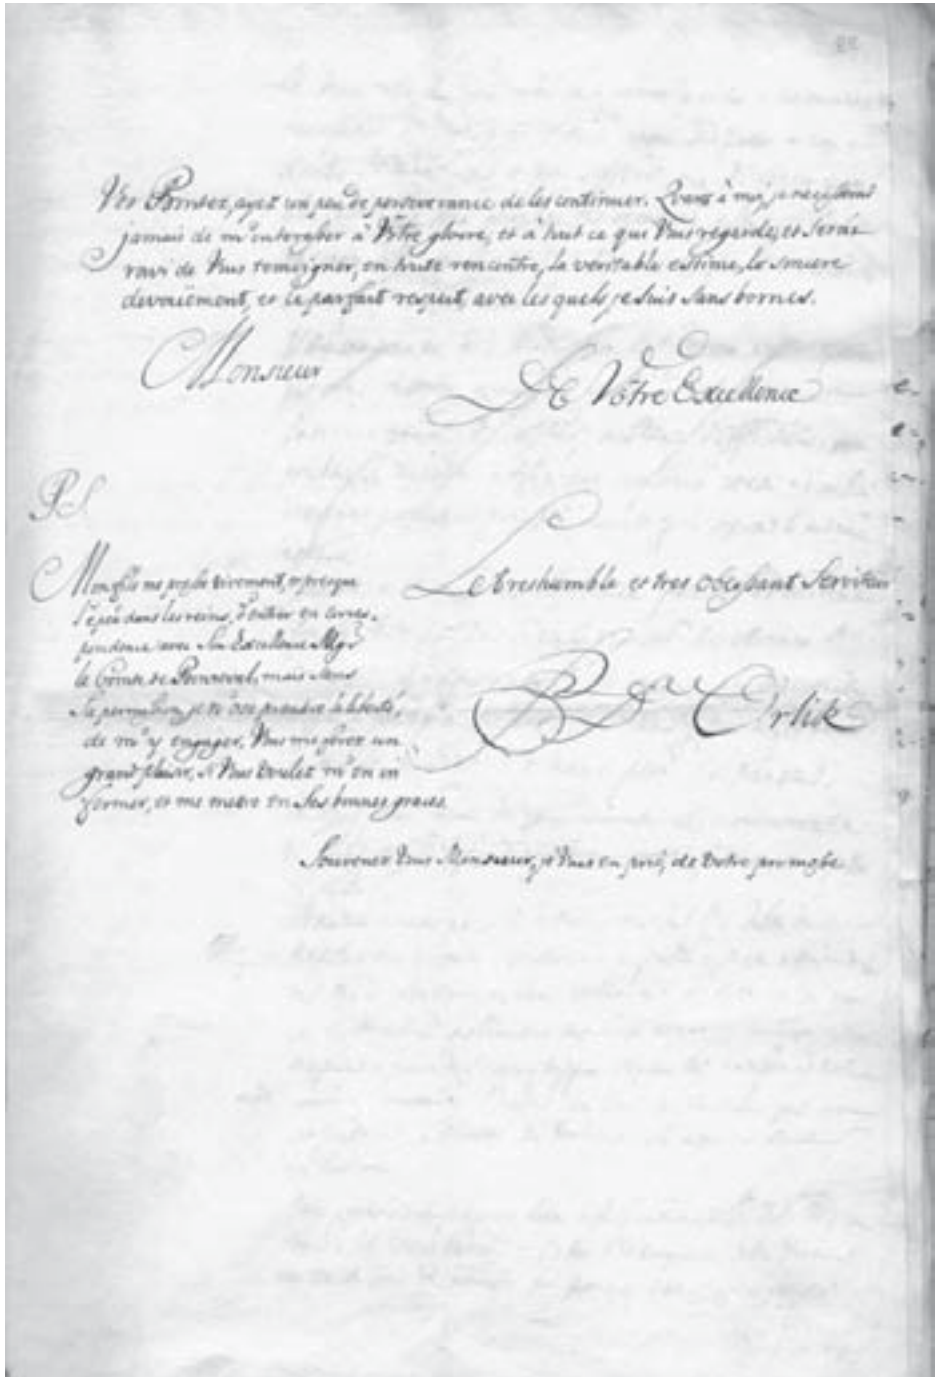 Vos Bontez, ayez un peu de perseverance de les continuer. Quant à moi, je
jamais de m'interesser à Vôtre gloire, et à tout ce qui Vous regarde, et serai
ravi de Vous temoigner, en toute rencontre, la veritable estime, le sincere
devouement, et le parfait respect, avec les quels je suis sans bornes.
Monsieur
De Vôtre Excellence
PS.
Mon fils me presse vivement, et presque
l'epeé dans les reins, d'entrer en corres-
pondence avec Son Excellence Msgr
le Comte de Bonneval, mais sans
Sa permission je n'ose prendre la liberté,
de m'y engager. Vous me ferez un
grand plaisir, si Vous voulez m'en in
former, et me metre en Ses bonnes graces.
Le tres humble et tres obeissant Serviteur
Orlik
Souvenez Vous Monsieur, je Vous en prie, de Votre promesse